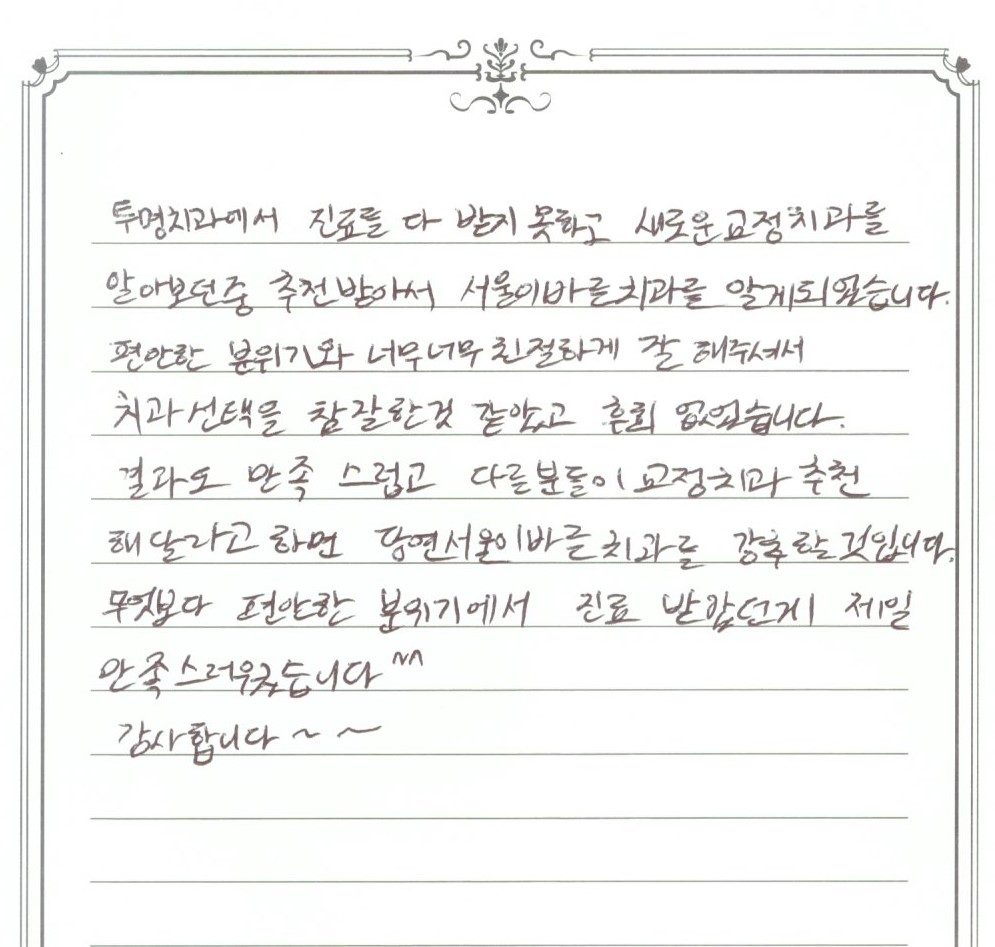 투명치과에서 진료를 다 받지 못하고 새로운교정치과를
알아보던중 추천받아서 서울이바른치과를 알게되었습니다.
편안한 분위기와 너무너무 친절하게 잘 해주셔서
치과선택을 참 잘한것 같았고 후회 없었습니다.
결과도 만족 스럽고 다른분들이 교정치과 추천
해달라고 하면 당연서울이바른치과를 강추할것입니다.
무엇보다 편안한 분위기에서 진료 받았던게 제일
만족스러웠습니다 ^^
감사합니다 ~ ~